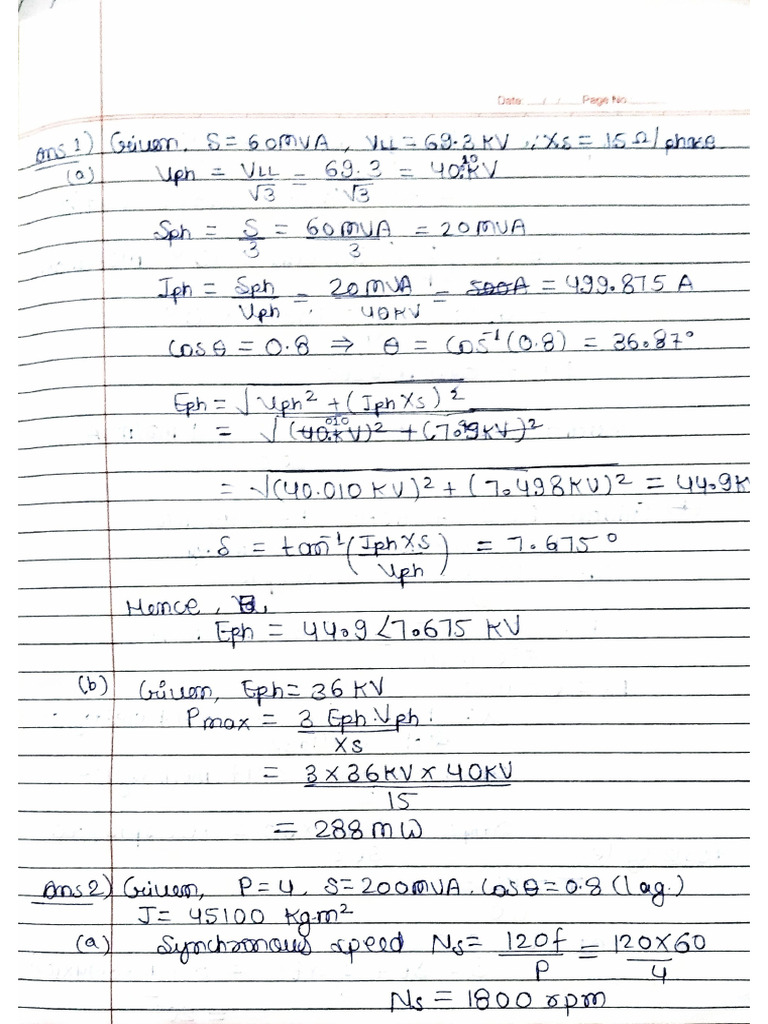 Date: / / Page No
Ans 1) Given. S = 60MVA, VLL = 69.3 KV, Xs = 15 Ω/phase
(a) Vph = VLL/√3 = 69.3/√3 = 40.10KV
Sph = S/3 = 60MVA/3 = 20MVA
Iph = Sph/Vph = 20MVA/40KV = 500A = 499.875 A
Cosθ = 0.8 ⇒ θ = Cos⁻¹(0.8) = 36.87°
Eph = √Vph² + (Iph Xs)²
= √(40.010KV)² + (7.49KV)²
= √(40.010 KV)² + (7.498KV)² = 44.9K
δ = tan⁻¹(Iph Xs/Vph) = 7.675°
Hence,
Eph = 44.9∠7.675 KV
(b) Given, Eph = 36 KV
Pmax = 3 Eph.Vph./Xs
= 3 × 36KV × 40KV/15
= 288MW
Ans 2) Given, P = 4, S = 200MVA. Cosθ = 0.8 (lag.)
J = 45100 Kg.m²
(a) Synchronous speed Ns = 120f/P = 120×60/4
Ns = 1800 rpm